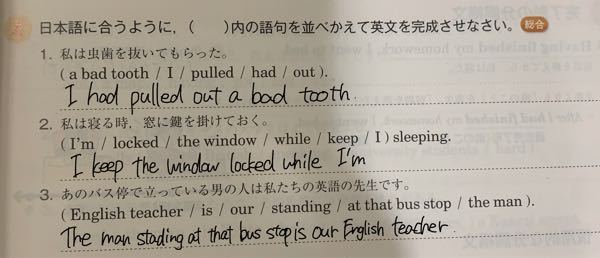 日本語に合うように，（　　）内の語句を並べかえて英文を完成させなさい。 総合
1. 私は虫歯を抜いてもらった。
( a bad tooth / I / pulled / had / out ).
I had pulled out a bad tooth.
2. 私は寝る時，窓に鍵を掛けておく。
( I'm / locked / the window / while / keep / I ) sleeping.
I keep the window locked while I'm
3. あのバス停で立っている男の人は私たちの英語の先生です。
( English teacher / is / our / standing / at that bus stop / the man ).
The man stading at that bus stop is our English teacher.